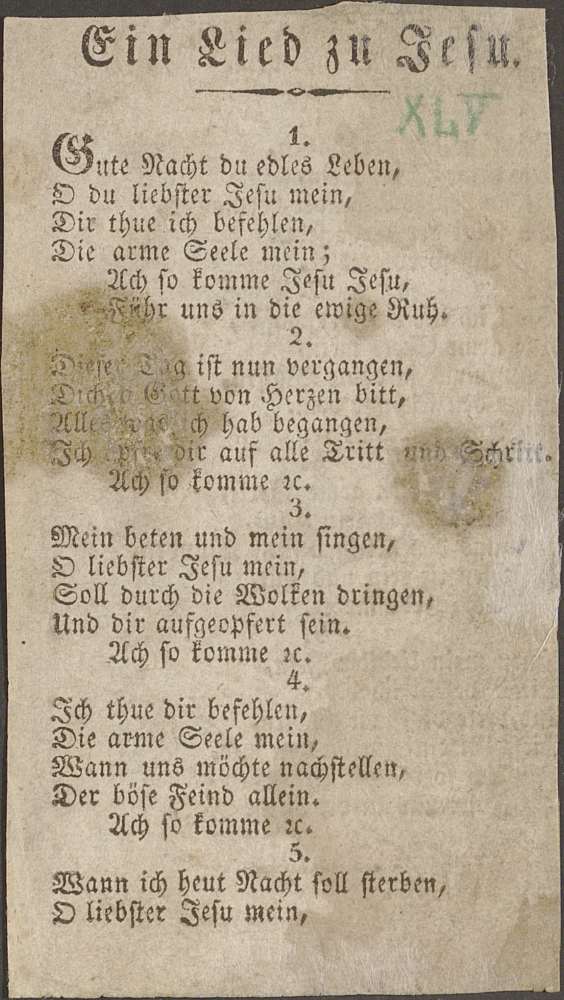 Ein Lied zu Jesu.
XLV
1.
Gute Nacht du edles Leben,
O du liebster Jesu mein,
Dir thue ich befehlen,
Die arme Seele mein;
Ach so komme Jesu Jesu,
Führ uns in die ewige Ruh.
2.
Dieser Tag ist nun vergangen,
Gott von Herzen bitt,
Alles was ich hab begangen,
Ich opfre dir auf alle Tritt und Schritt.
Ach so komme ꝛc.
3.
Mein beten und mein singen,
O liebster Jesu mein,
Soll durch die Wolken dringen,
Und dir aufgeopfert sein.
Ach so komme ꝛc.
4.
Ich thue dir befehlen,
Die arme Seele mein,
Wann uns möchte nachstellen,
Der böse Feind allein.
Ach so komme ꝛc.
5.
Wann ich heut Nacht soll sterben,
O liebster Jesu mein,